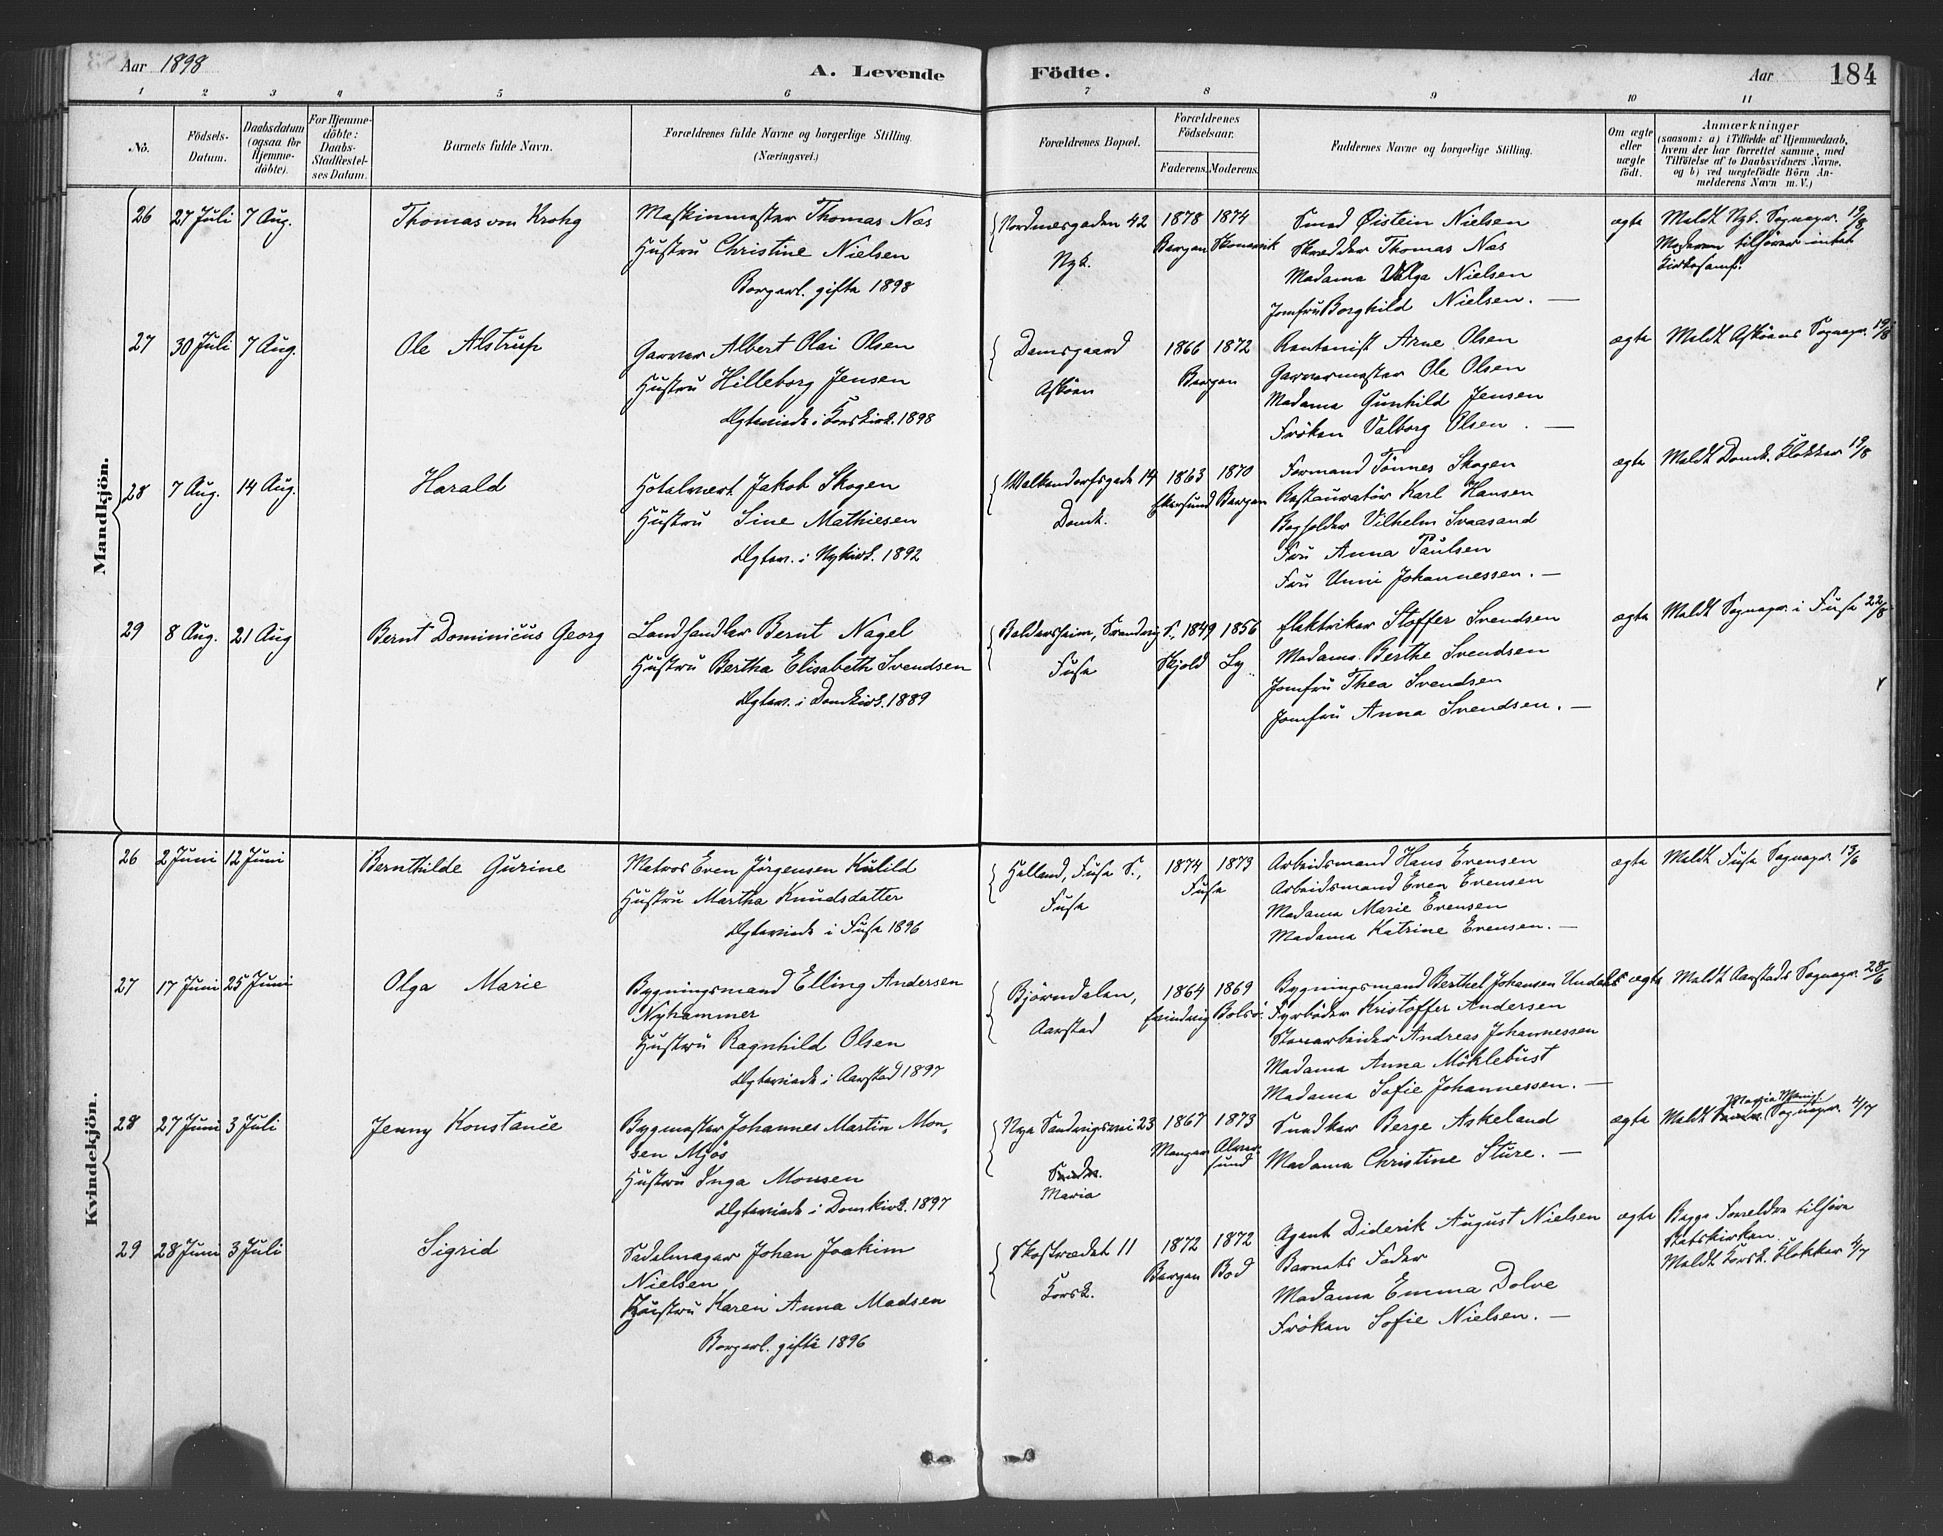 Aar 1898
A. Levende Födte.
Aar
184
1 2 3 4 5 6 7 8 9 10 11
No.
Födsels-Datum.
Daabsdatum (ogsaa for Hjemme-döbte).
For Hjemme-döbte: Daabs-Stadfæstel-ses Datum.
Barnets fulde Navn.
Forældrenes fulde Navne og borgerlige Stilling. (Næringsvei.)
Forældrenes Bopæl.
Forældrenes Födselsaar.
Faderens. Moderens.
Faddernes Navne og borgerlige Stilling.
Om ægte eller uægte födt.
Anmærkninger
(saasom: a) i Tilfælde af Hjemmedaab,
hvem der har forrettet samme, med
Tilföielse af to Daabsvidners Navne.
og b) ved uægtefödte Börn An-
melderens Navn m. V.)
Mandkjön.
26 27 Juli 7 Aug. Thomas von Krohg
Maskinmester Thomas Næs
Hustru Christine Nielsen
Borgerl. gifte 1898
Nordnesgaden 42
Nyk.
1878 1874
Bergen Skonevik
Smed Øistein Nielsen
Skrædder Thomas Næs
Madame Valga Nielsen
Jomfru Borghild Nielsen. —
ægte
Meldt Nyk. Sognepr. 19/8
Moderen tilhører intet
Kirkesamf.
27 30 Juli 7 Aug. Ole Alstrup
Garver Albert Olai Olsen
Hustru Hilleborg Jensen
Ægteviede i Korskirk. 1898
Damsgaard
Askøen
1866 1872
Bergen
Kontorist Arne Olsen
Garvermester Ole Olsen
Madame Gunhild Jensen
Frøken Valborg Olsen. —
ægte
Meldt Askøens Sognepr. 19/8
28 7 Aug. 14 Aug. Harald
Hotelvert Jakob Skogen
Hustru Sine Mathiesen
Ægtev. i Nykirk. 1892
Walkendorfsgade 14
Domk.
1863 1870
Ekersund Bergen
Formand Tønnes Skogen
Restauratør Karl Hansen
Bogholder Vilhelm Svaasand
Fru Anna Paulsen
Fru Unni Johannessen. —
ægte
Meldt Domk. Klokker 19/8
29 8 Aug. 21 Aug Bernt Dominicus Georg
Landhandler Bernt Nagel
Hustru Bertha Elisabeth Svendsen
Ægtev. i Domkirk. 1889
Baldersheim, Strandvig S.,
Fusa
1849 1856
Skjold Ly..
Elektriker Stoffer Svendsen
Madame Berthe Svendsen
Jomfru Thea Svendsen
Jomfru Anna Svendsen. —
ægte
Meldt Sognepr. i Fusa 22/8
Kvindekjön.
26 2 Juni 12 Juni Bernthilde Gurine
Matros Even Jörgensen Kulild
Hustru Martha Knudsdatter
Ægteviede i Fusa 1896
Helland, Fusa S.,
Fusa
1874 1873
Fusa
Arbeidsmand Hans Evensen
Arbeidsmand Even Evensen
Madame Marie Evensen
Madame Katrine Evensen. —
ægte
Meldt Fusa Sognepr. 13/6
27 17 Juni 25 Juni Olga Marie
Bygningsmand Elling Andersen
Nyhammer
Hustru Ragnhild Olsen
Ægteviede i Aarstad 1897
Bjørndalen,
Aarstad
1864 1869
Evindvig Bolsö.
Bygningsmand Berthel Johansen Undals
Fyrbøder Kristoffer Andersen
Stenarbeider Andreas Johannessen
Madame Anna Möklebust
Madame Sofie Johannessen. —
ægte
Meldt Aarstads Sognepr. 28/6
28 27 Juni 3 Juli Jenny Konstance
Bygmester Johannes Martin Mon-
sen Mjös
Hustru Inga Monsen
Ægteviede i Domkirk. 1897
Nye Sandvigsvei 23
Sandv.
Maria
1867 1873
Manger Alver-
sund
Sundkar Berge Askeland
Madame Christine Sture. —
ægte
Maria Menigh.
Meldt Sandv. Sognepr. 4/7
29 28 Juni 3 Juli Sigrid
Sadelmager Johan Joakim
Nielsen
Hustru Karen Anna Madsen
Borgerl. gifte 1896
Skostrædet 11
Korsk.
1872 1872
Bergen Bod
Agent Diderik August Nielsen
Barnets Fader
Madame Emma Dolve
Frøken Sofie Nielsen. —
ægte
Begge Forældre tilhøre
Statskirken.
Meldt Korsk. Klokker 4/7